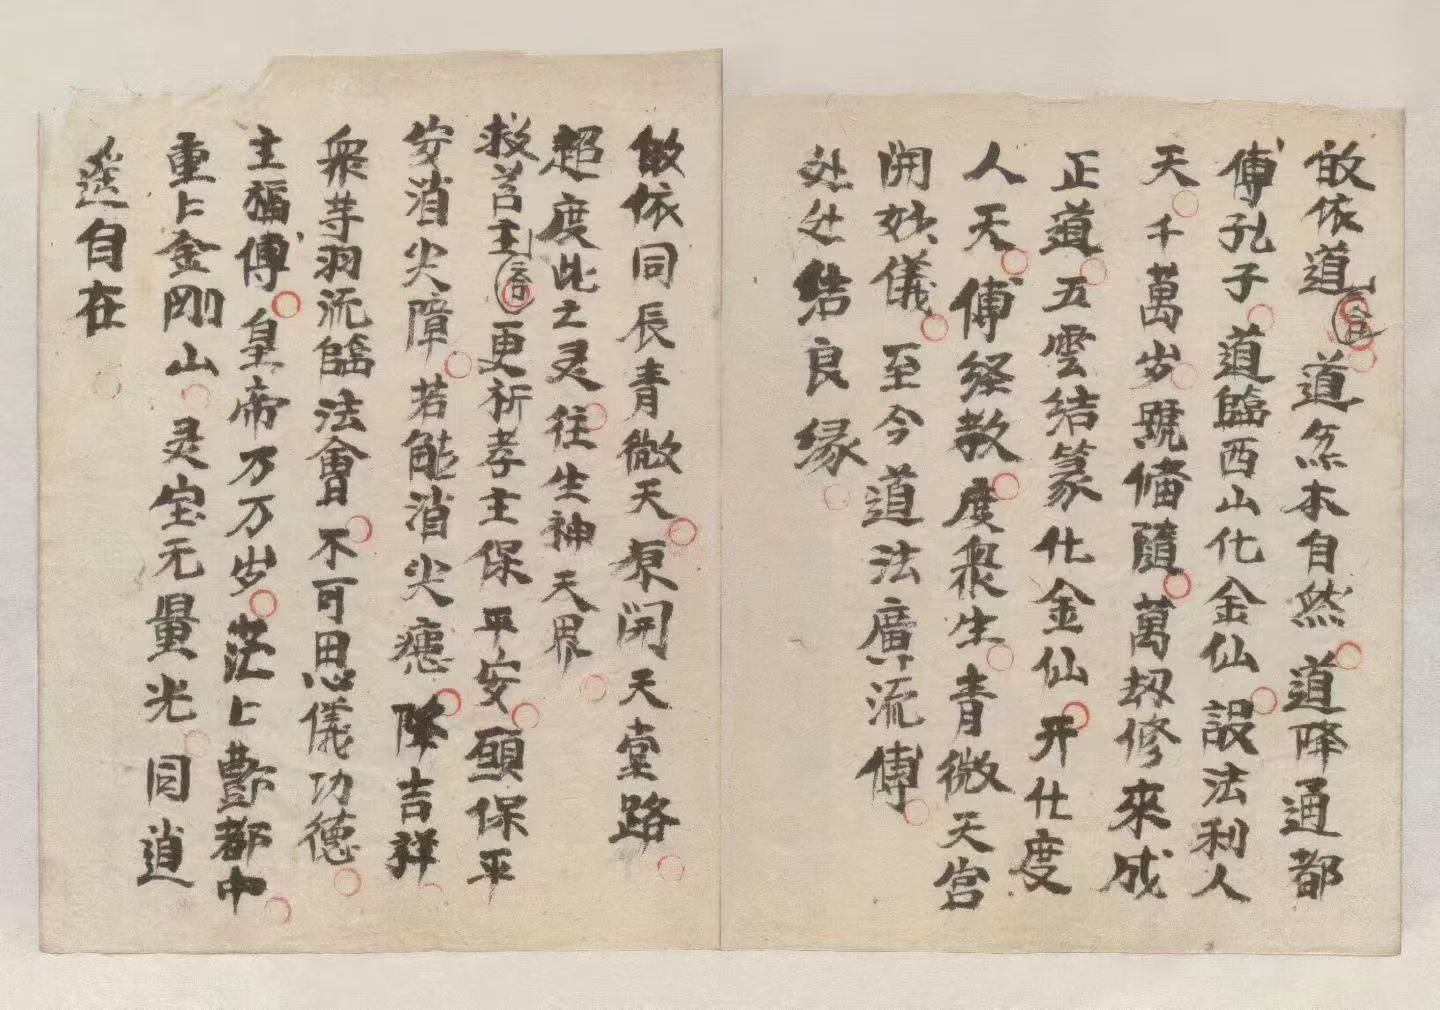 皈依道 道炁本自然 道降通都
傳孔子 道臨西山化金仙 設法利人
天 千萬岁號俻隨 萬劫修來成
正道 五雲結篆化金仙 开仕度
人天 傳経教 度衆生 青微天宫
開妙儀 至今道法廣流傳
处处結良緣
皈依同辰青微天 泉開天堂路
超度此之灵往生神天界
救苦主 更祈孝主保平安 願保平
安消災障 若能消災 降吉祥
衆等羽流臨法會 不可思儀功德
主福傳 皇帝万万岁 茫上酆都中
重上金剛山 灵宝无量光 同逍
遥自在